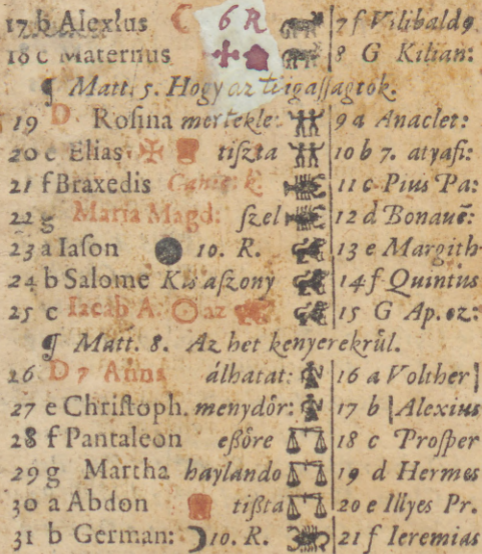 17 b Alexius 6 R 7 f Vilibald9
18 c Maternus 8 G Kilian:
¶ Matt. 5. Hogy az ti igaſſagtok.
19 D Roſina mertekle: 9 a Anaclet:
20 e Elias tiſzta 10 b 7. atyafi:
21 f Braxedis Canic: k. 11 c Pius Pa:
22 g Maria Magd: ſzel 12 d Bonauē:
23 a Iaſon 10. R. 13 e Margith
24 b Salome Kis aſzony 14 f Quintius
25 c Iacab A. ☉ az 15 G Ap. oz:
¶ Matt. 8. Az het kenyerekrűl.
26 D 7 Anna álhatat: 16 a Volther
27 e Chriſtoph. menydőr: 17 b Alexius
28 f Pantaleon eßőre 18 c Proſper
29 g Martha haylando 19 d Hermes
30 a Abdon tißta 20 e Illyes Pr.
31 b German: 10. R. 21 f Ieremias